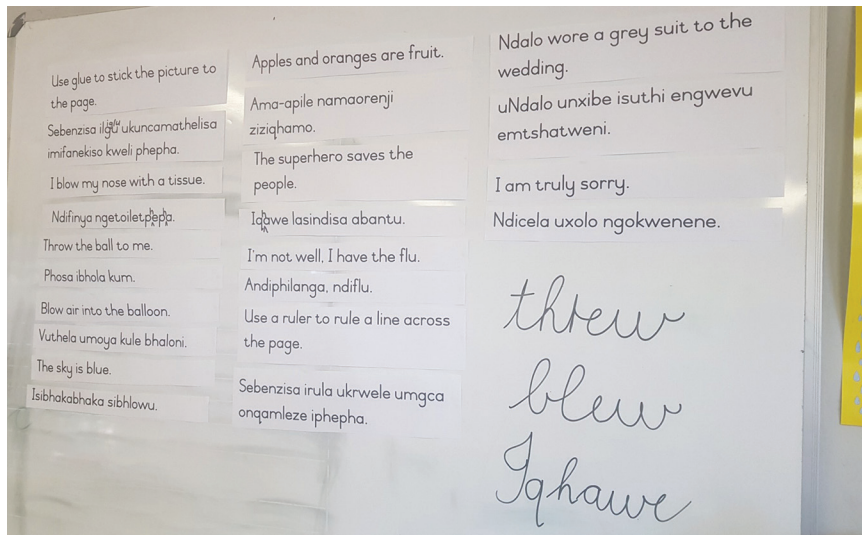 Use glue to stick the picture to
the page.
Sebenzisa iglu ukuncamathelisa
imifanekiso kweli phepha.
I blow my nose with a tissue.
Ndifinya ngetoiletphepha.
Throw the ball to me.
Phosa ibhola kum.
Blow air into the balloon.
Vuthela umoya kule bhaloni.
The sky is blue.
Isibhakabhaka sibhlowu.
Apples and oranges are fruit.
Ama-apile namaorenji
ziziqhamo.
The superhero saves the
people.
Iqhawe lasindisa abantu.
I'm not well, I have the flu.
Andiphilanga, ndiflu.
Use a ruler to rule a line across
the page.
Sebenzisa irula ukrwele umgca
onqamleze iphepha.
Ndalo wore a grey suit to the
wedding.
uNdalo unxibe isuthi engwevu
emtshatweni.
I am truly sorry.
Ndicela uxolo ngokwenene.
threw
blew
Iqhawe